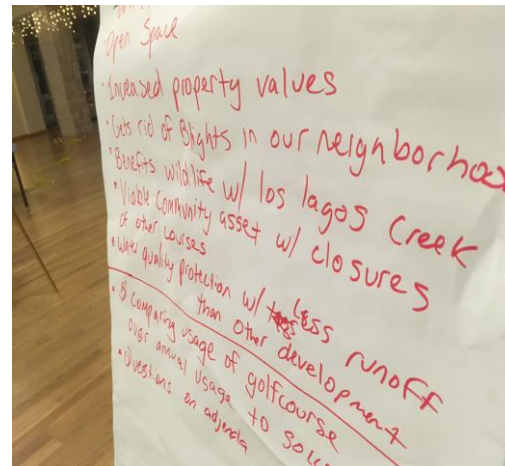 • Open Space
• Increased property values
• Gets rid of Blights in our neighborhoo
• Benefits wildlife w/ los lagos Creek
• Viable Community asset w/ closures
of other courses
• Water quality protection w/ less runoff
than other development
• Comparing usage of golfcourse
over annual usage to
• Questions on adjenda